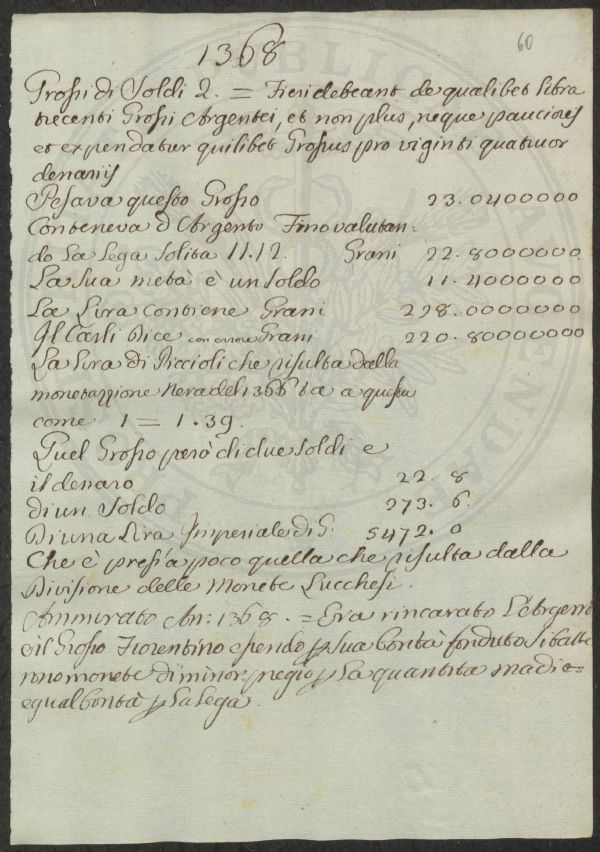 60
1368
Grossi di Soldi 2. = Fieri debeant de qualibet libra
trecenti Grossi Argentei, et non plus, neque pauciores
et expendatur quilibet Grossus pro viginti quatuor
denariis
Pesava questo Grosso 23.0400000
Conteneva d'Argento Fino valutan-
do La Lega Solita 11.12. Grani 22.8000000
La sua metà è un Soldo 11.4000000
La Lira contiene Grani 228.0000000
Il Carli Dice con errore Grani 220.80000000
La Lira di Piccioli che risulta dalla
monetazzione Nera del 1366 sta a questa
come 1 = 1.39.
Quel Grosso però di due Soldi e
il denaro 22.8
di un Soldo 273.6.
Di una Lira Imperiale di G: 5472.0
Che è presso a poco quella che risulta dalla
Divisione delle Monete Lucchesi.
Ammirato An: 1368. = Era rincarato L'Argento
e il Grosso Fiorentino essendo p sua bontà fonduto si batte
rono monete di minor pregio p La quantità ma di
egual bontà p La Lega.